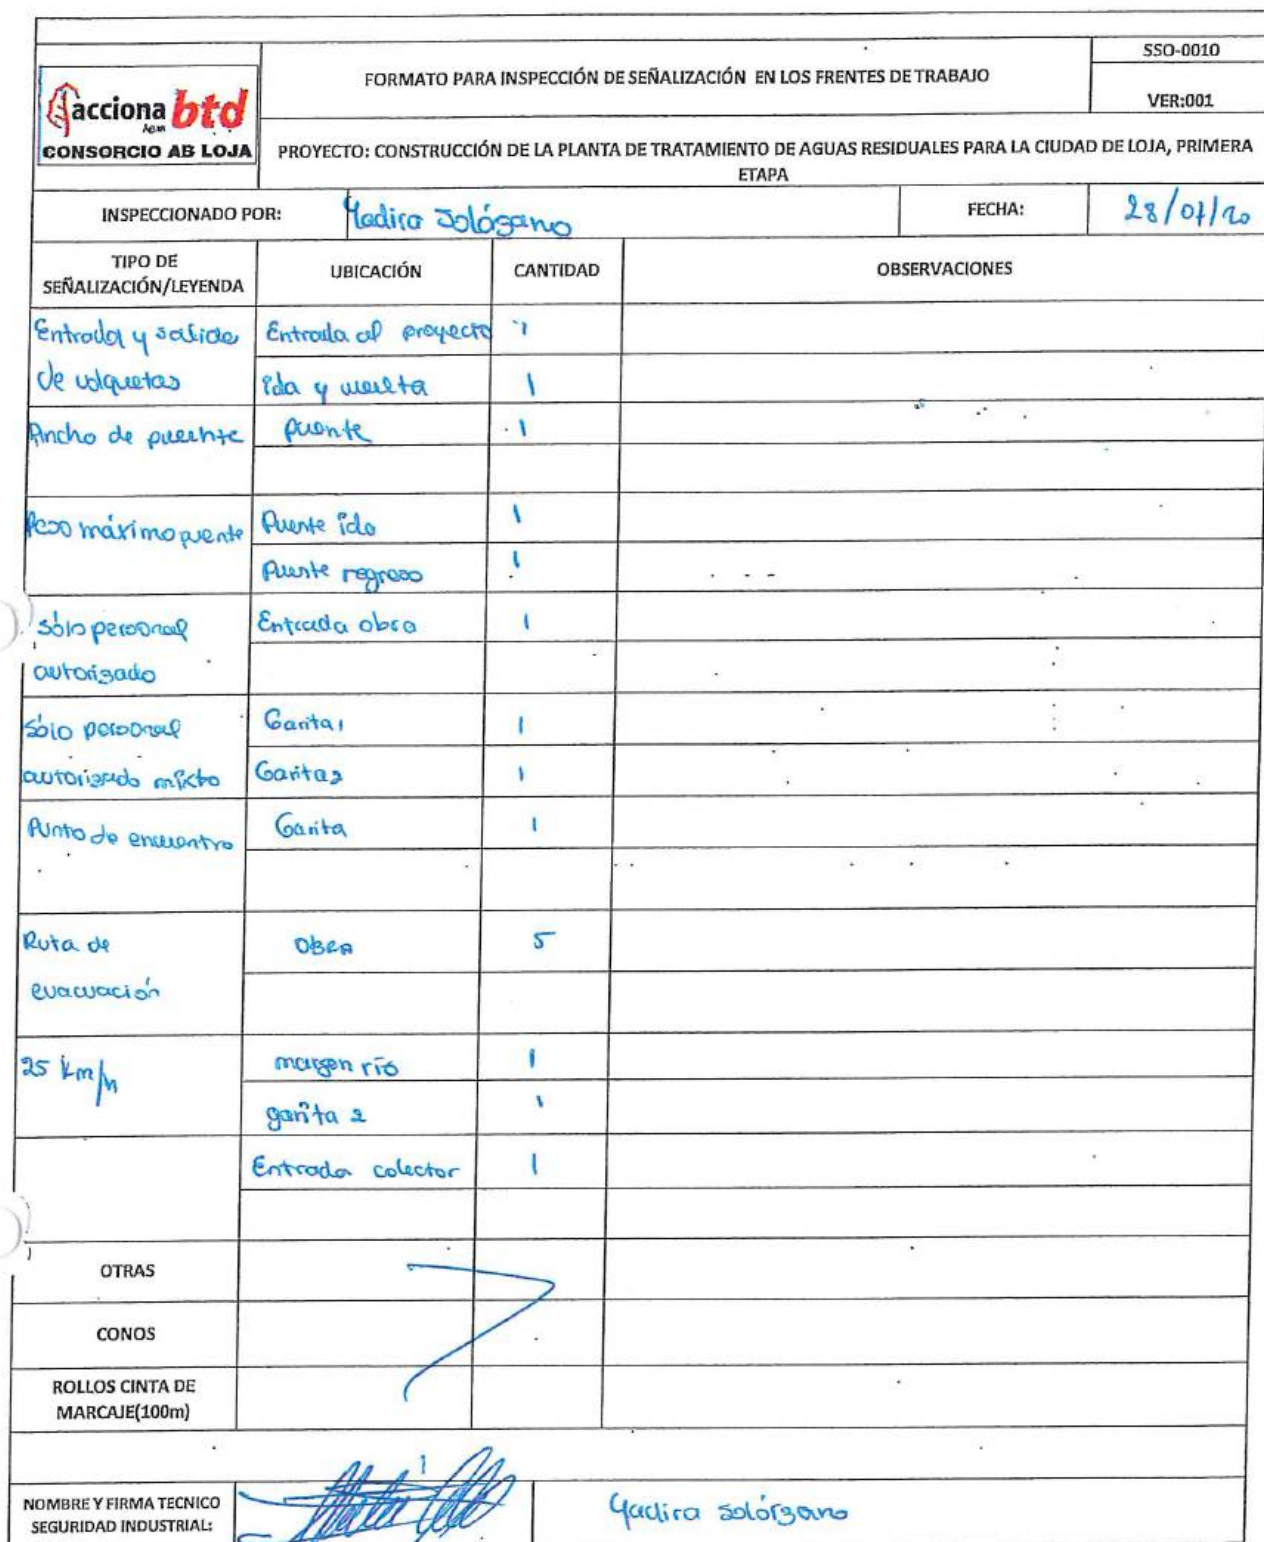 SSO-0010
FORMATO PARA INSPECCIÓN DE SEÑALIZACIÓN EN LOS FRENTES DE TRABAJO
VER:001
acciona btd
CONSORCIO AB LOJA
PROYECTO: CONSTRUCCIÓN DE LA PLANTA DE TRATAMIENTO DE AGUAS RESIDUALES PARA LA CIUDAD DE LOJA, PRIMERA
ETAPA
INSPECCIONADO POR: Yadira Solózano FECHA: 28/07/20
TIPO DE
SEÑALIZACIÓN/LEYENDA UBICACIÓN CANTIDAD OBSERVACIONES
Entrada y salida Entrada al proyecto 1
de volquetas ida y vuelta 1
Ancho de puente puente 1
Peso máximo puente Puente ida 1
Puente regreso 1
Sólo personal Entrada obra 1
autorizado
Sólo personal Garita 1 1
autorizado mixto Garita 2 1
Punto de encuentro Garita 1
Ruta de OBRA 5
evacuación
25 km/h margen río 1
garita 2 1
Entrada colector 1
OTRAS
CONOS
ROLLOS CINTA DE
MARCAJE(100m)
NOMBRE Y FIRMA TECNICO
SEGURIDAD INDUSTRIAL: Yadira Solórzano